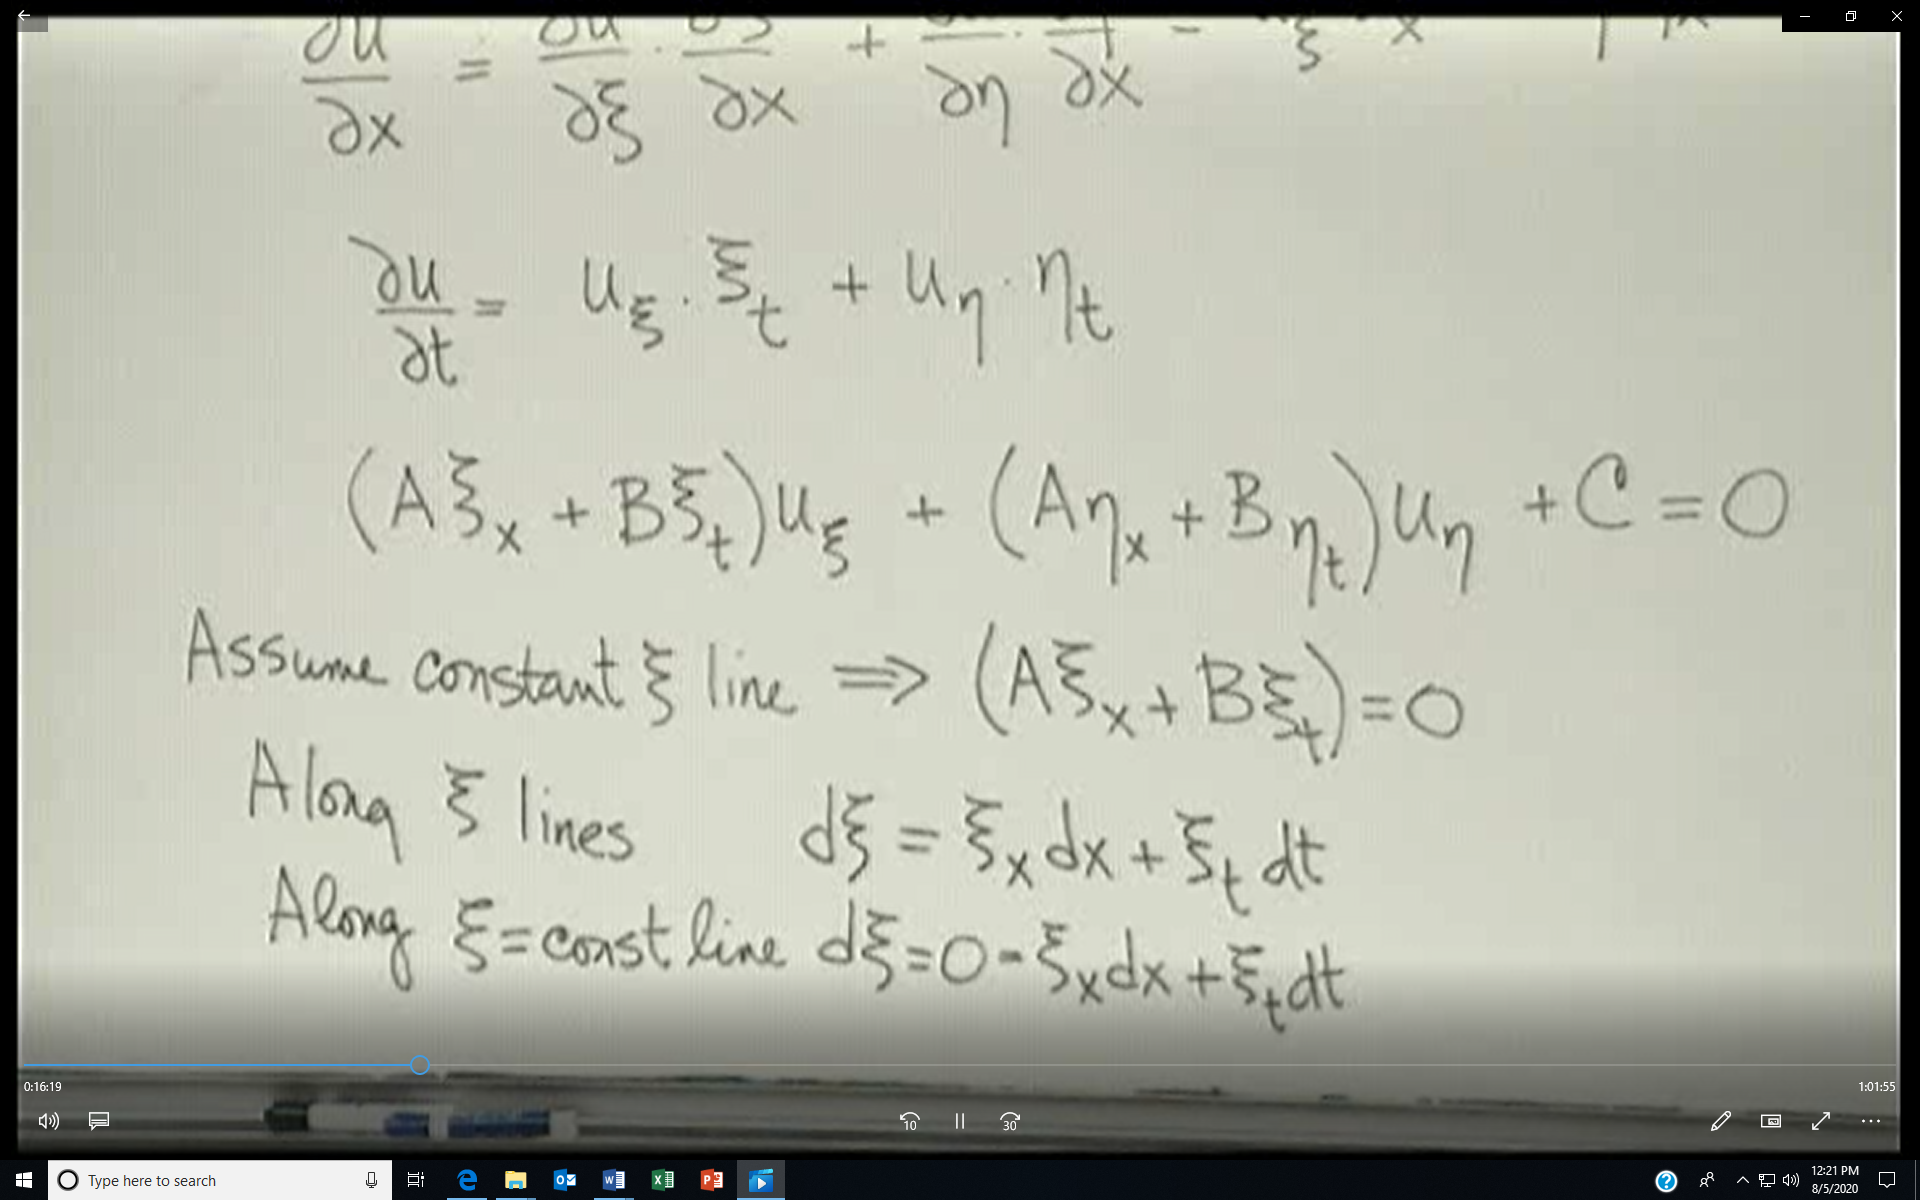 ∂u/∂x = ∂u/∂ξ · ∂ξ/∂x + ∂/∂η · ∂x
∂u/∂t = u_ξ · ξ_t + u_η · η_t
(Aξ_x + Bξ_t)u_ξ + (Aη_x + Bη_t)u_η + C = 0
Assume constant ξ line ⟹ (Aξ_x + Bξ_t) = 0
Along ξ lines dξ = ξ_x dx + ξ_t dt
Along ξ = const line dξ = 0 = ξ_x dx + ξ_t dt
0:16:19
1:01:55
10
30
Type here to search
12:21 PM
8/5/2020